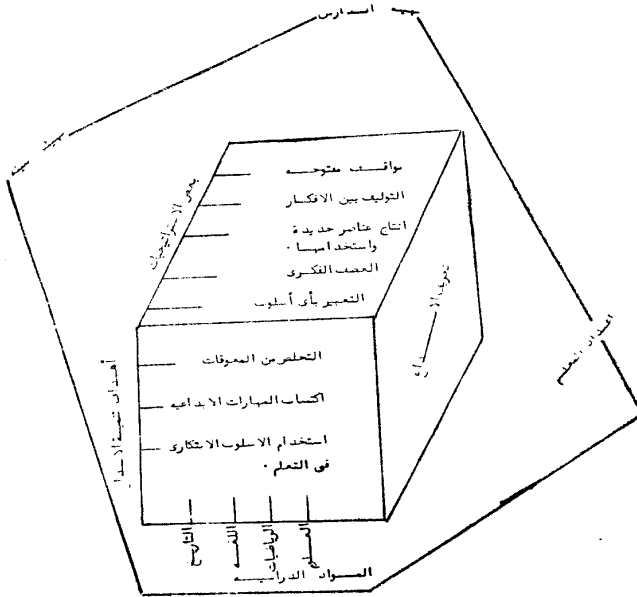 المدارس
بعض الاستراتيجيات
مواقف مفتوحه
التوليف بين الافكار
انتاج عناصر جديدة
واستخدامها .
العصف الفكرى
التعبير بأى أسلوب
تعريف الابداع
اعداد المعلم
أهداف تنمية الابداع
التخلص من المعوقات
اكتساب المهارات الابداعيه
استخدام الاسلوب الابتكارى
فى التعلم .
التاريخ
اللغه
الرياضيات
العلوم
المواد الدراسيه